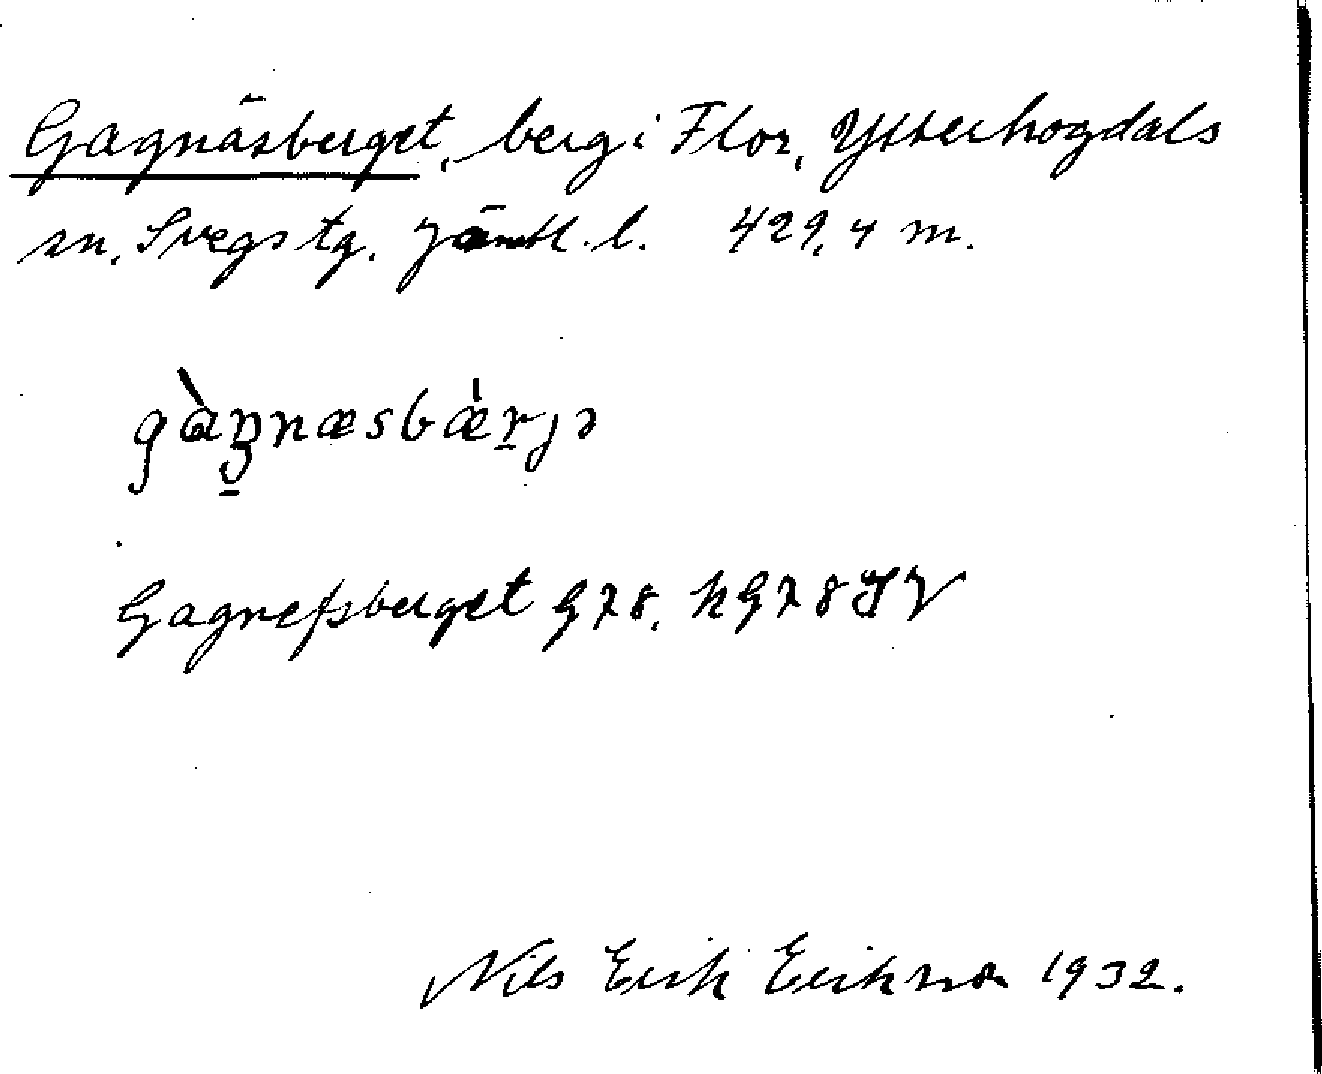 Gagnäsberget, berg i Flor, Ytterhogdals
sn, Svegs tg. Jämtl. l. 429,4 m.
gàŋnæsbæ̀rjə
Gagneſsberget G78, hG78SV
Nils Erik Erikson 1932.